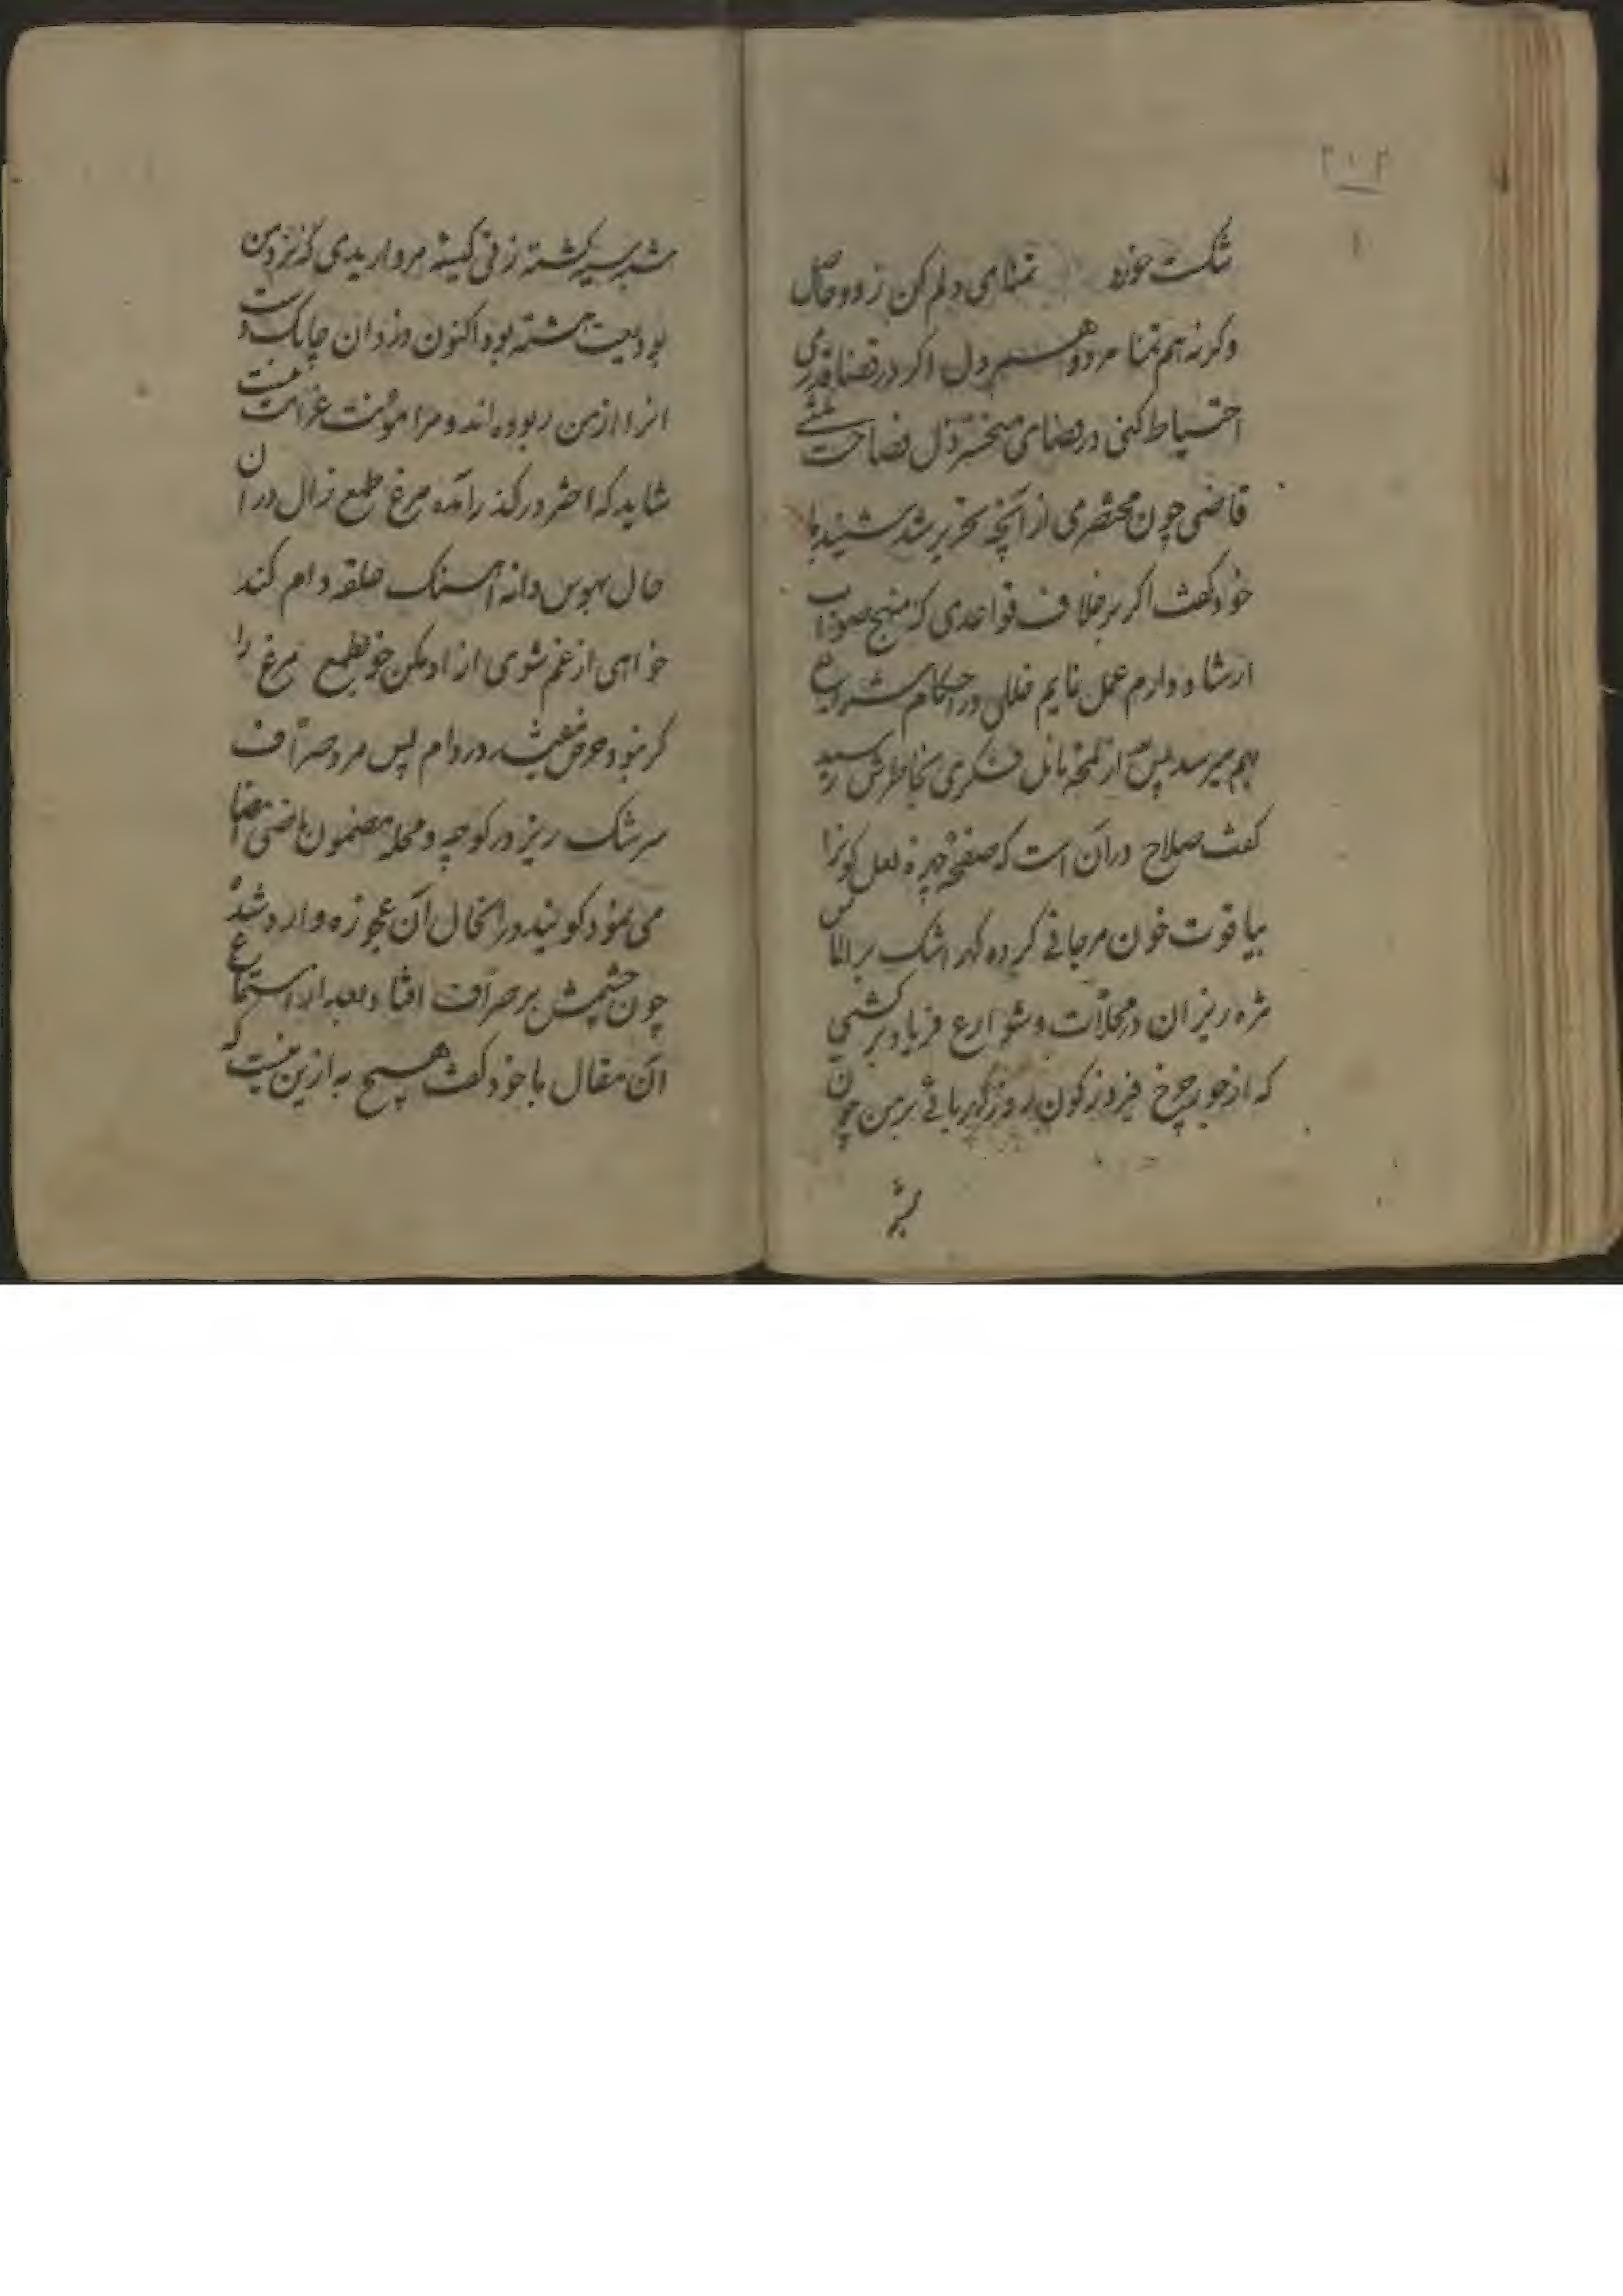 ۲۱۲
۱
شکست خورد تمنای دلم کن زود حاصل
وکرنه هم تمنا مرد و هم دل اکر در قضا قدری
احتیاط کنی در قضای فضاحت
قاضی چون مختصری از آنچه تحریر شد شنید با
خود کفت اکر بر خلاف قواعدی که منهج صواب
ارشاد دارم عمل نمایم خللی در احکام شرایع
بهم میرسد پس از لمحه تامل فکری بخاطرش رسید
کفت صلاح در آن است که صفحه چهره لعل کونرا
بیاقوت خون مرجانی کرده کهر اشک بر الماس
مژه ریزان در محلات و شوارع فریاد برکشی
که از جور چرخ فیروزه کون روز کهربائی بر من چون
شبه
شبه سیه کشته زنی کیسه مرواریدی که نزد من
بودیعت هشته بود اکنون دزدان چابک دست
انرا از من ربوده اند و مرا مؤنت غرامت نیست
شاید که اختر در کذر آمده مرغ طمع زال در ان
حال بهوس دانه آهنک حلقه دام کند
خواهی از غم شوی ازاد مکن خو بطمع مرغ را
کر نبود حرص نیفتد در دام پس مرد صراف
سرشک ریز در کوچه و محله مضمون ماضی امضا
می نمود کویند در انحال آن عجوزه وارد شده
چون چشمش بر صراف افتاد بعد از استماع
آن مقال با خود کفت هیچ به ازین نیست که